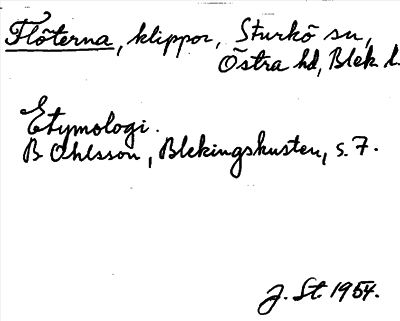 Flöterna, klippor, Sturkö sn,
Östra hd, Blek l.
Etymologi.
B Ohlsson, Blekingskusten, s. 7.
J. St 1954.